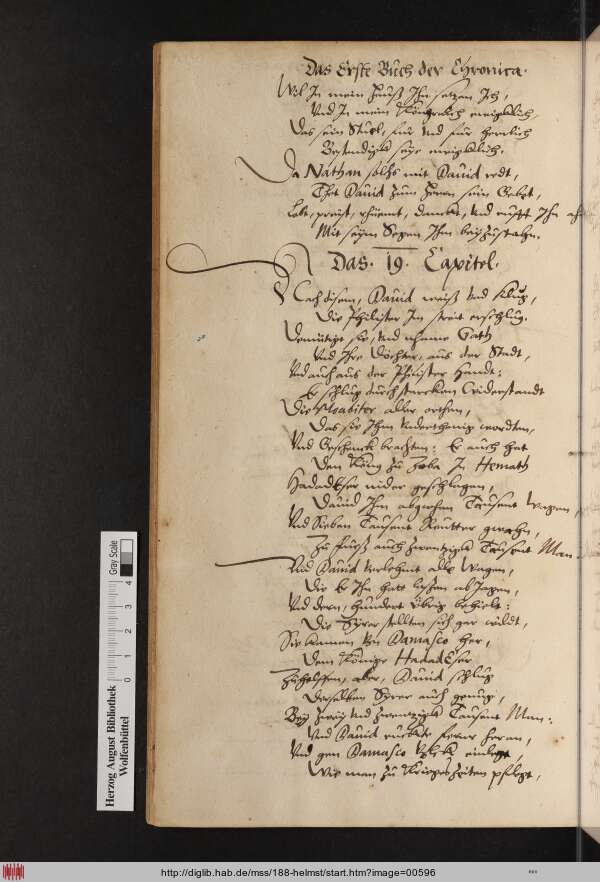 Das Erste Buch der Chronica.
Wil In mein Hauß Ihn setzen Ich,
Und In mein Königreich ewigklich,
Das sein Stuel, für und für herrlich
Bestendigk seye ewigklich.
Da Nathan solchs mit Dauid redt,
Thet Dauid zum Herrn sein Gebet,
Lobt, preyst, rhüemt, danckt, und rufft Ihn ah
Mit seym Segen Ihm beyzustahn.
Das. 19. Capitel.
Nach disem, Dauid weiß und klug,
Die Philister Im streit erschlug.
Demütigt sie, und nhame Gath
Und Ihre Döchter, aus der Stadt,
Und auch aus der Philister Handt:
Er schlug durch starcken Widerstandt
Die Moabiter aller orthen,
Das sie Ihm underthenig wordten,
Und Geschenck brachten: Er auch hat
Den König zu Zoba In Hemath
HadadEser nider geschlagen,
Dauid Ihm abgenhomen Tausent Wagen,
Und Sieben Tausent Reutter
Zu fueß auch zwentzigk Tausent Man
Und Dauid verlehmt alle Wagen,
Die Er Ihn hatt lassen abJagen,
Und dern, hundert übrig behielt:
Die Syrer stellten sich gar wildt,
Sie kamen von Damasco her,
Dem Könige HadadEser
Zuhelffen, aber, Dauid schlug
Derselben Syrer auch genug,
Bey zwey und zwentzigk Tausent Man:
Und Dauid ruckte ferner heran,
Und gen Damasco Volck einlegt,
Wie man zu Kriegszeiten pflegt,
Herzog August Bibliothek
Wolfenbüttel
0 1 2 3 4
Gray Scale
http://diglib.hab.de/mss/188-helmst/start.htm?image=00596